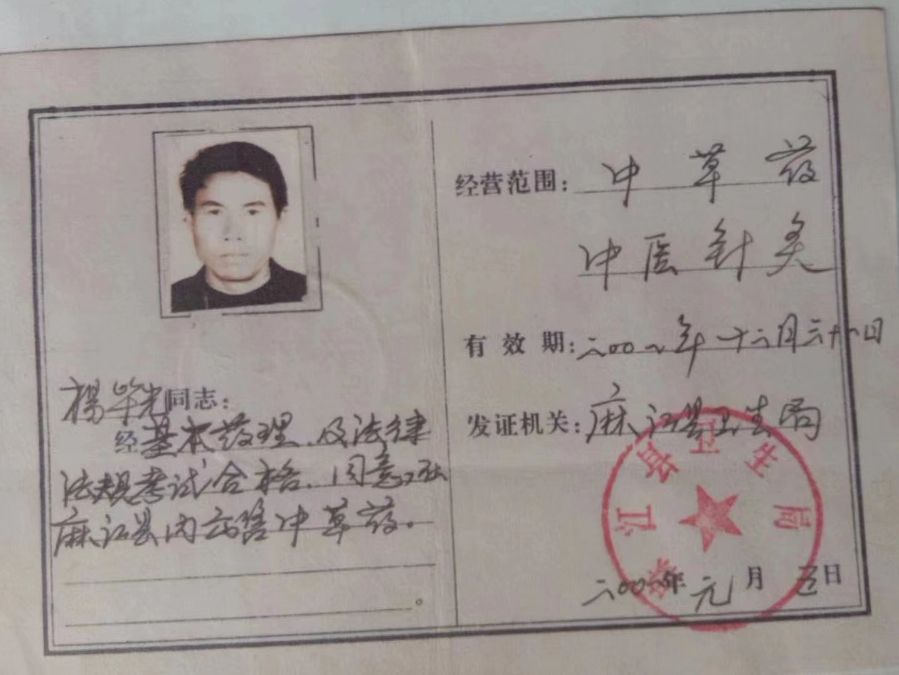 杨毕光同志：
经基本药理、及法律
法规考试合格，同意在
麻江县内销售中草药。
。
经营范围：中草药
中医针灸
有效期：二00二年十二月三十一日
发证机关：麻江县卫生局
麻江县卫生局
二00二年元月五日